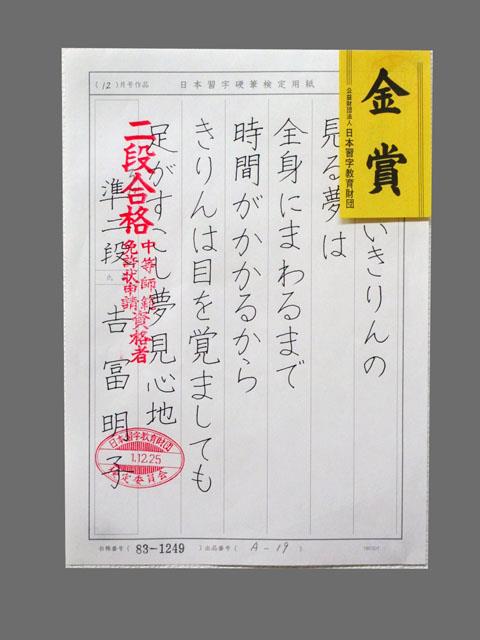 (12)月号作品 日本習字硬筆検定用紙
金賞
公益財団法人 日本習字教育財団
いきりんの
見る夢は
全身にまわるまで
時間がかかるから
きりんは目を覚ましても
足がす し夢見心地
準二段 吉冨明子
二段合格
中等師範資格者
免許状申請
日本習字教育財団
1.12.25
検定委員会
会員番号(83-1249)出品番号(A-19)